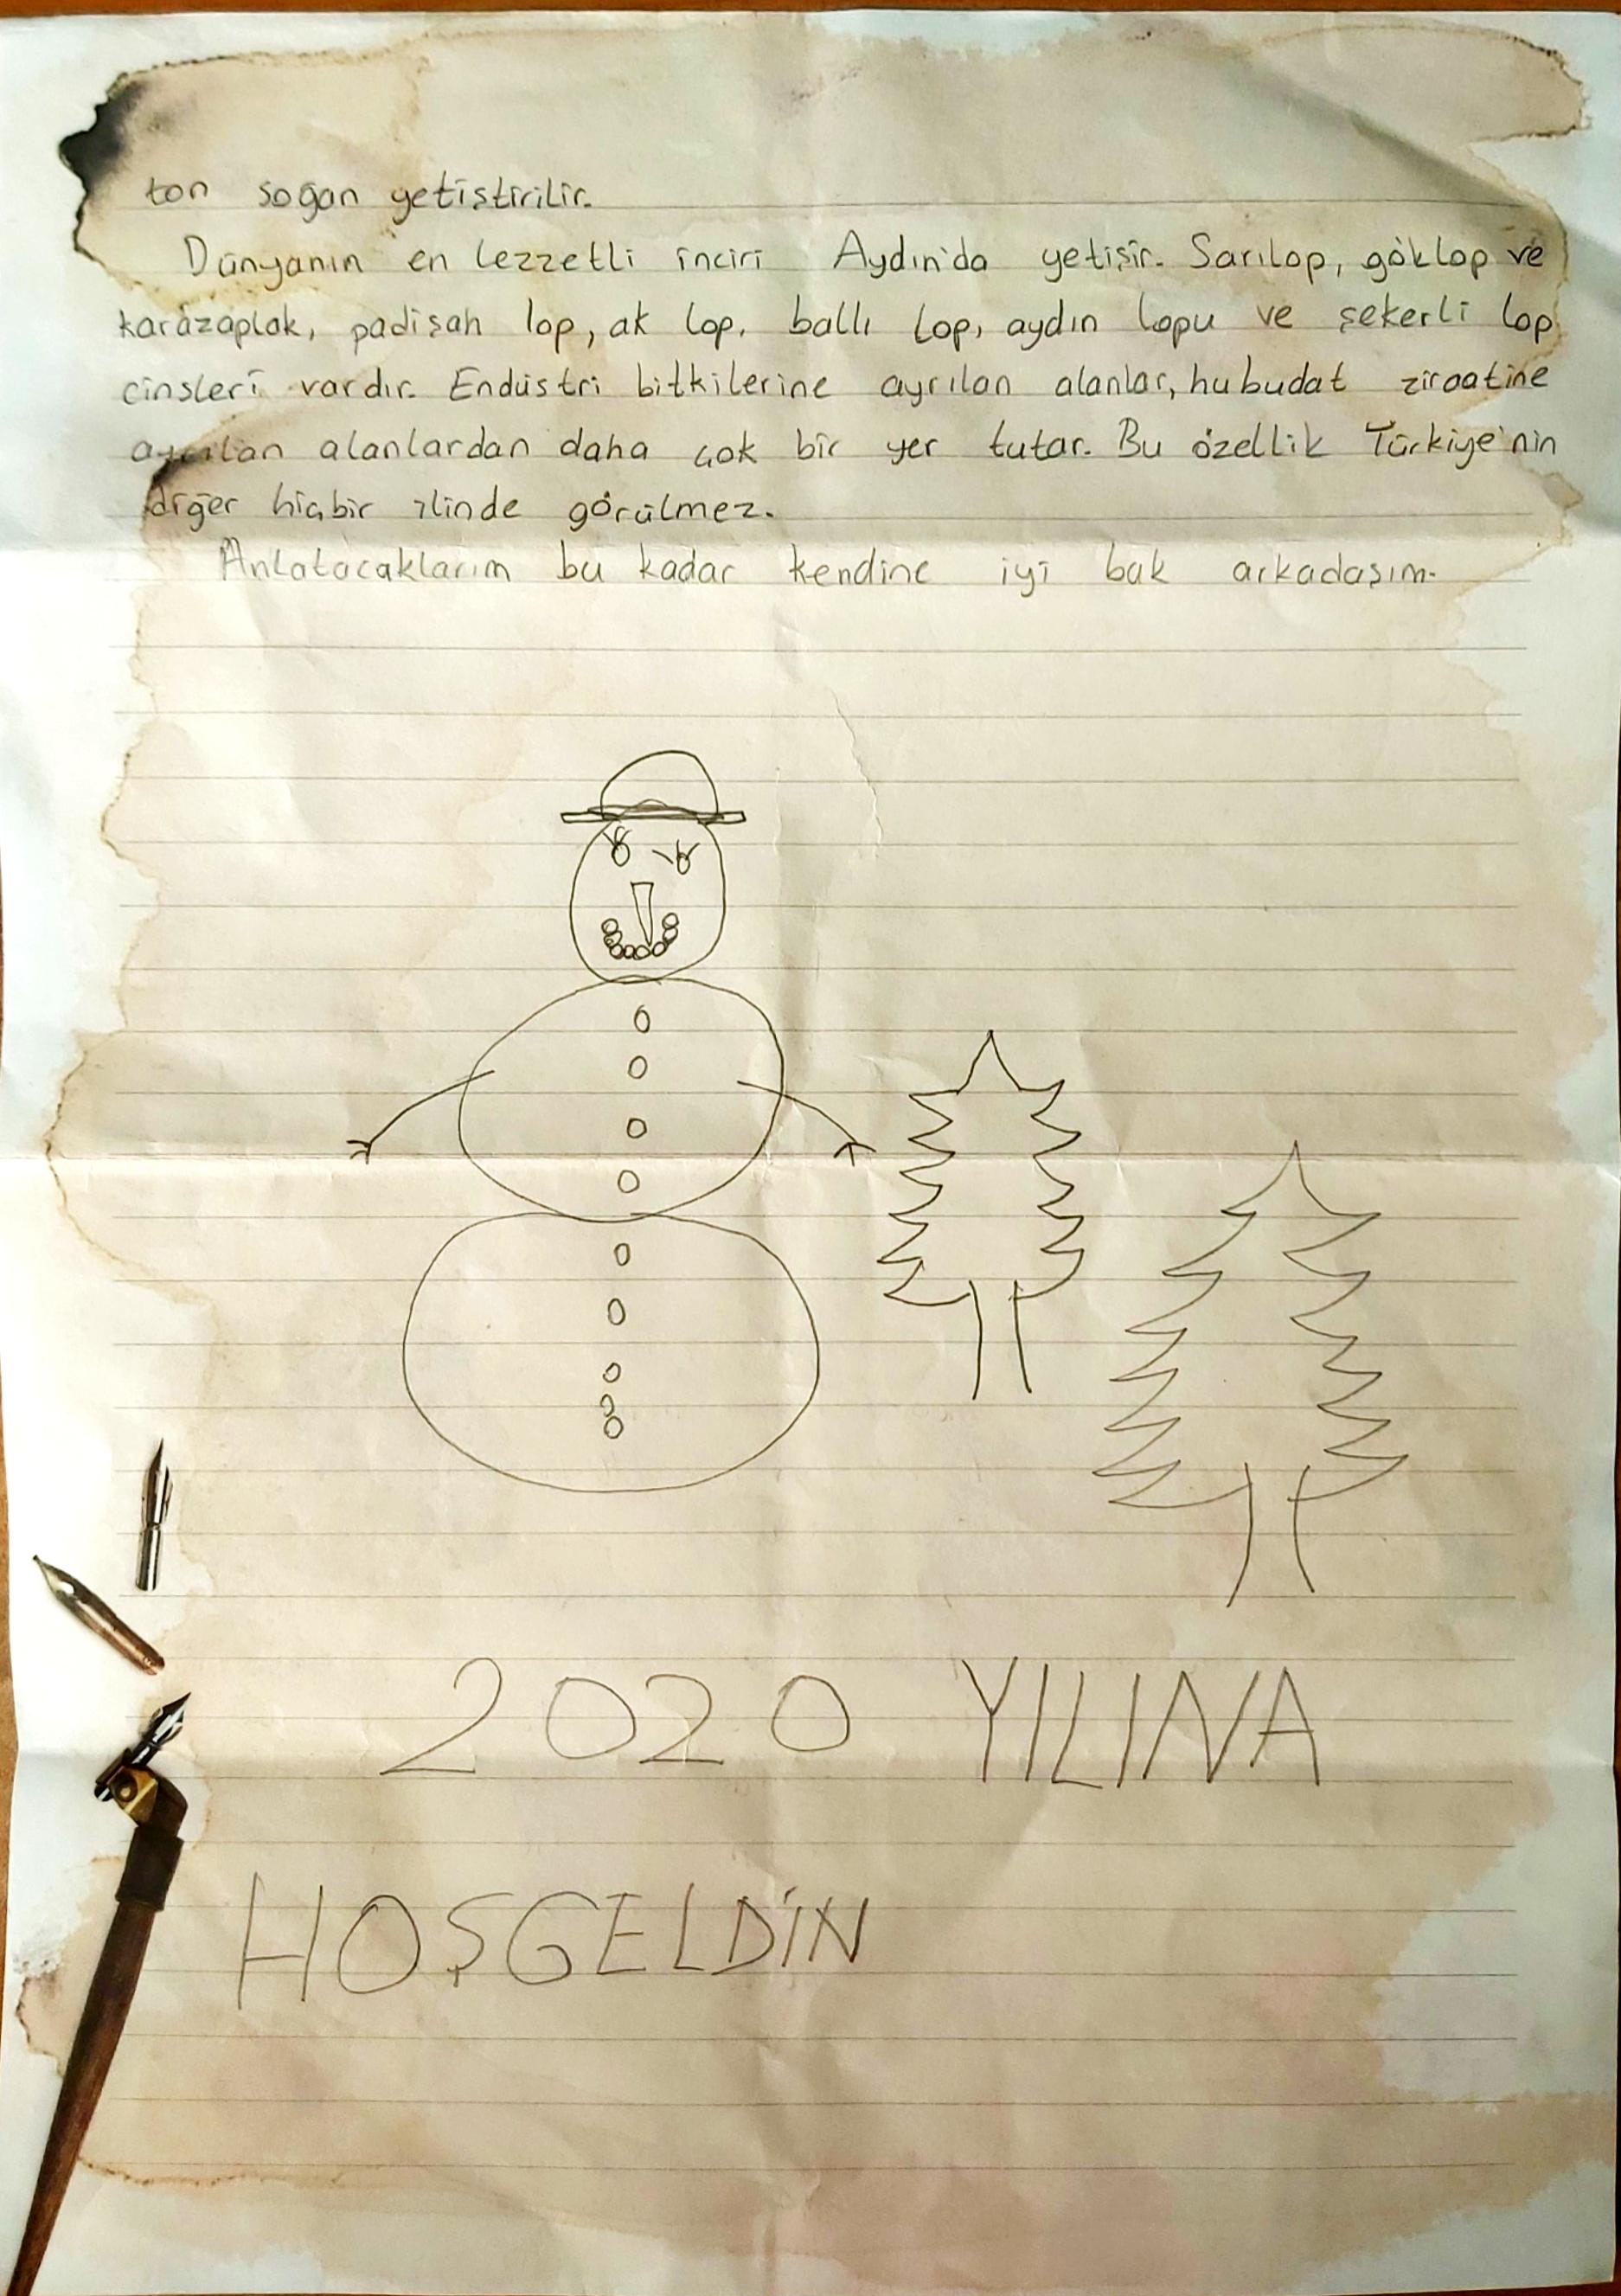 ton soğan yetiştirilir.
Dünyanın en lezzetli inciri Aydın'da yetişir. Sarılop, göklop ve
karazaplak, padişah lop, ak lop, ballı lop, aydın lopu ve şekerli lop
cinsleri vardır. Endüstri bitkilerine ayrılan alanlar, hububat ziraatine
ayrılan alanlardan daha çok bir yer tutar. Bu özellik Türkiye'nin
diğer hiçbir ilinde görülmez.
Anlatacaklarım bu kadar kendine iyi bak arkadaşım.
2020 YILINA
HOŞGELDİN